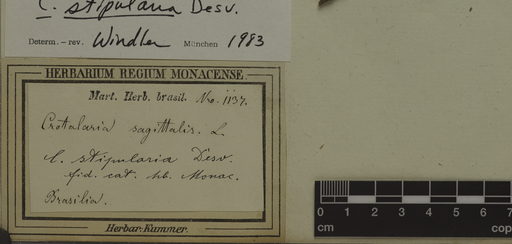 C. stipularia Desv.
Determ. – rev. Windler München 1983
HERBARIUM REGIUM MONACENSE.
Mart. Herb. brasil. Nro. 1137.
Crotalaria sagittalis. L.
C. stipularia Desv.
fid. cat. hb. Monac.
Brasilia.
Herbar. Kummer.
0 1 2 3 4 5 6 7
cm cop